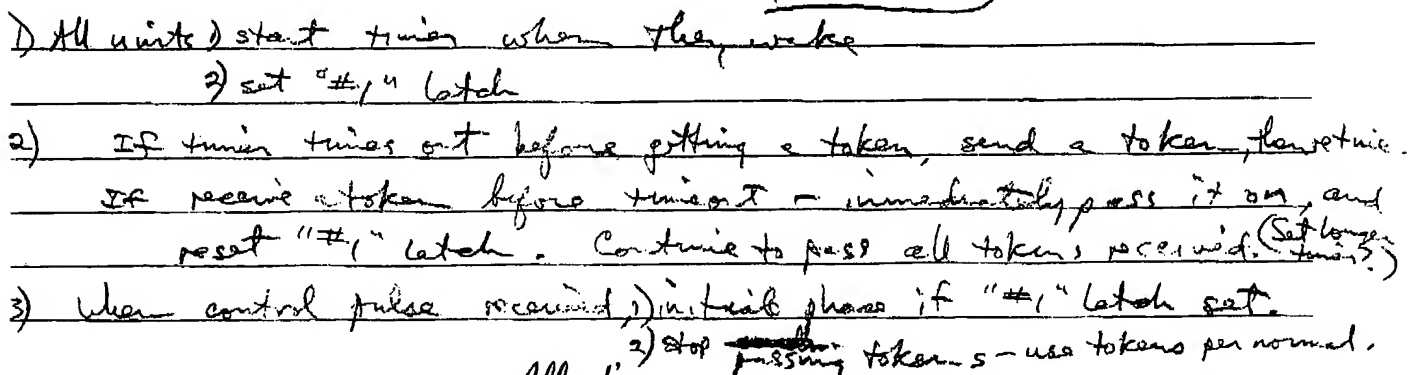 1) All units 1) start timer when they wake
2) set "#1" latch
2) If timer times out before getting a token, send a token, then retime.
If receive a token before timeout - immediately pass it on, and
reset "#1" latch. Continue to pass all tokens received. (Set longer timer?)
3) When control pulse received, 1) initiate phase if "#1" latch set.
2) stop passing tokens - use tokens per normal.
All